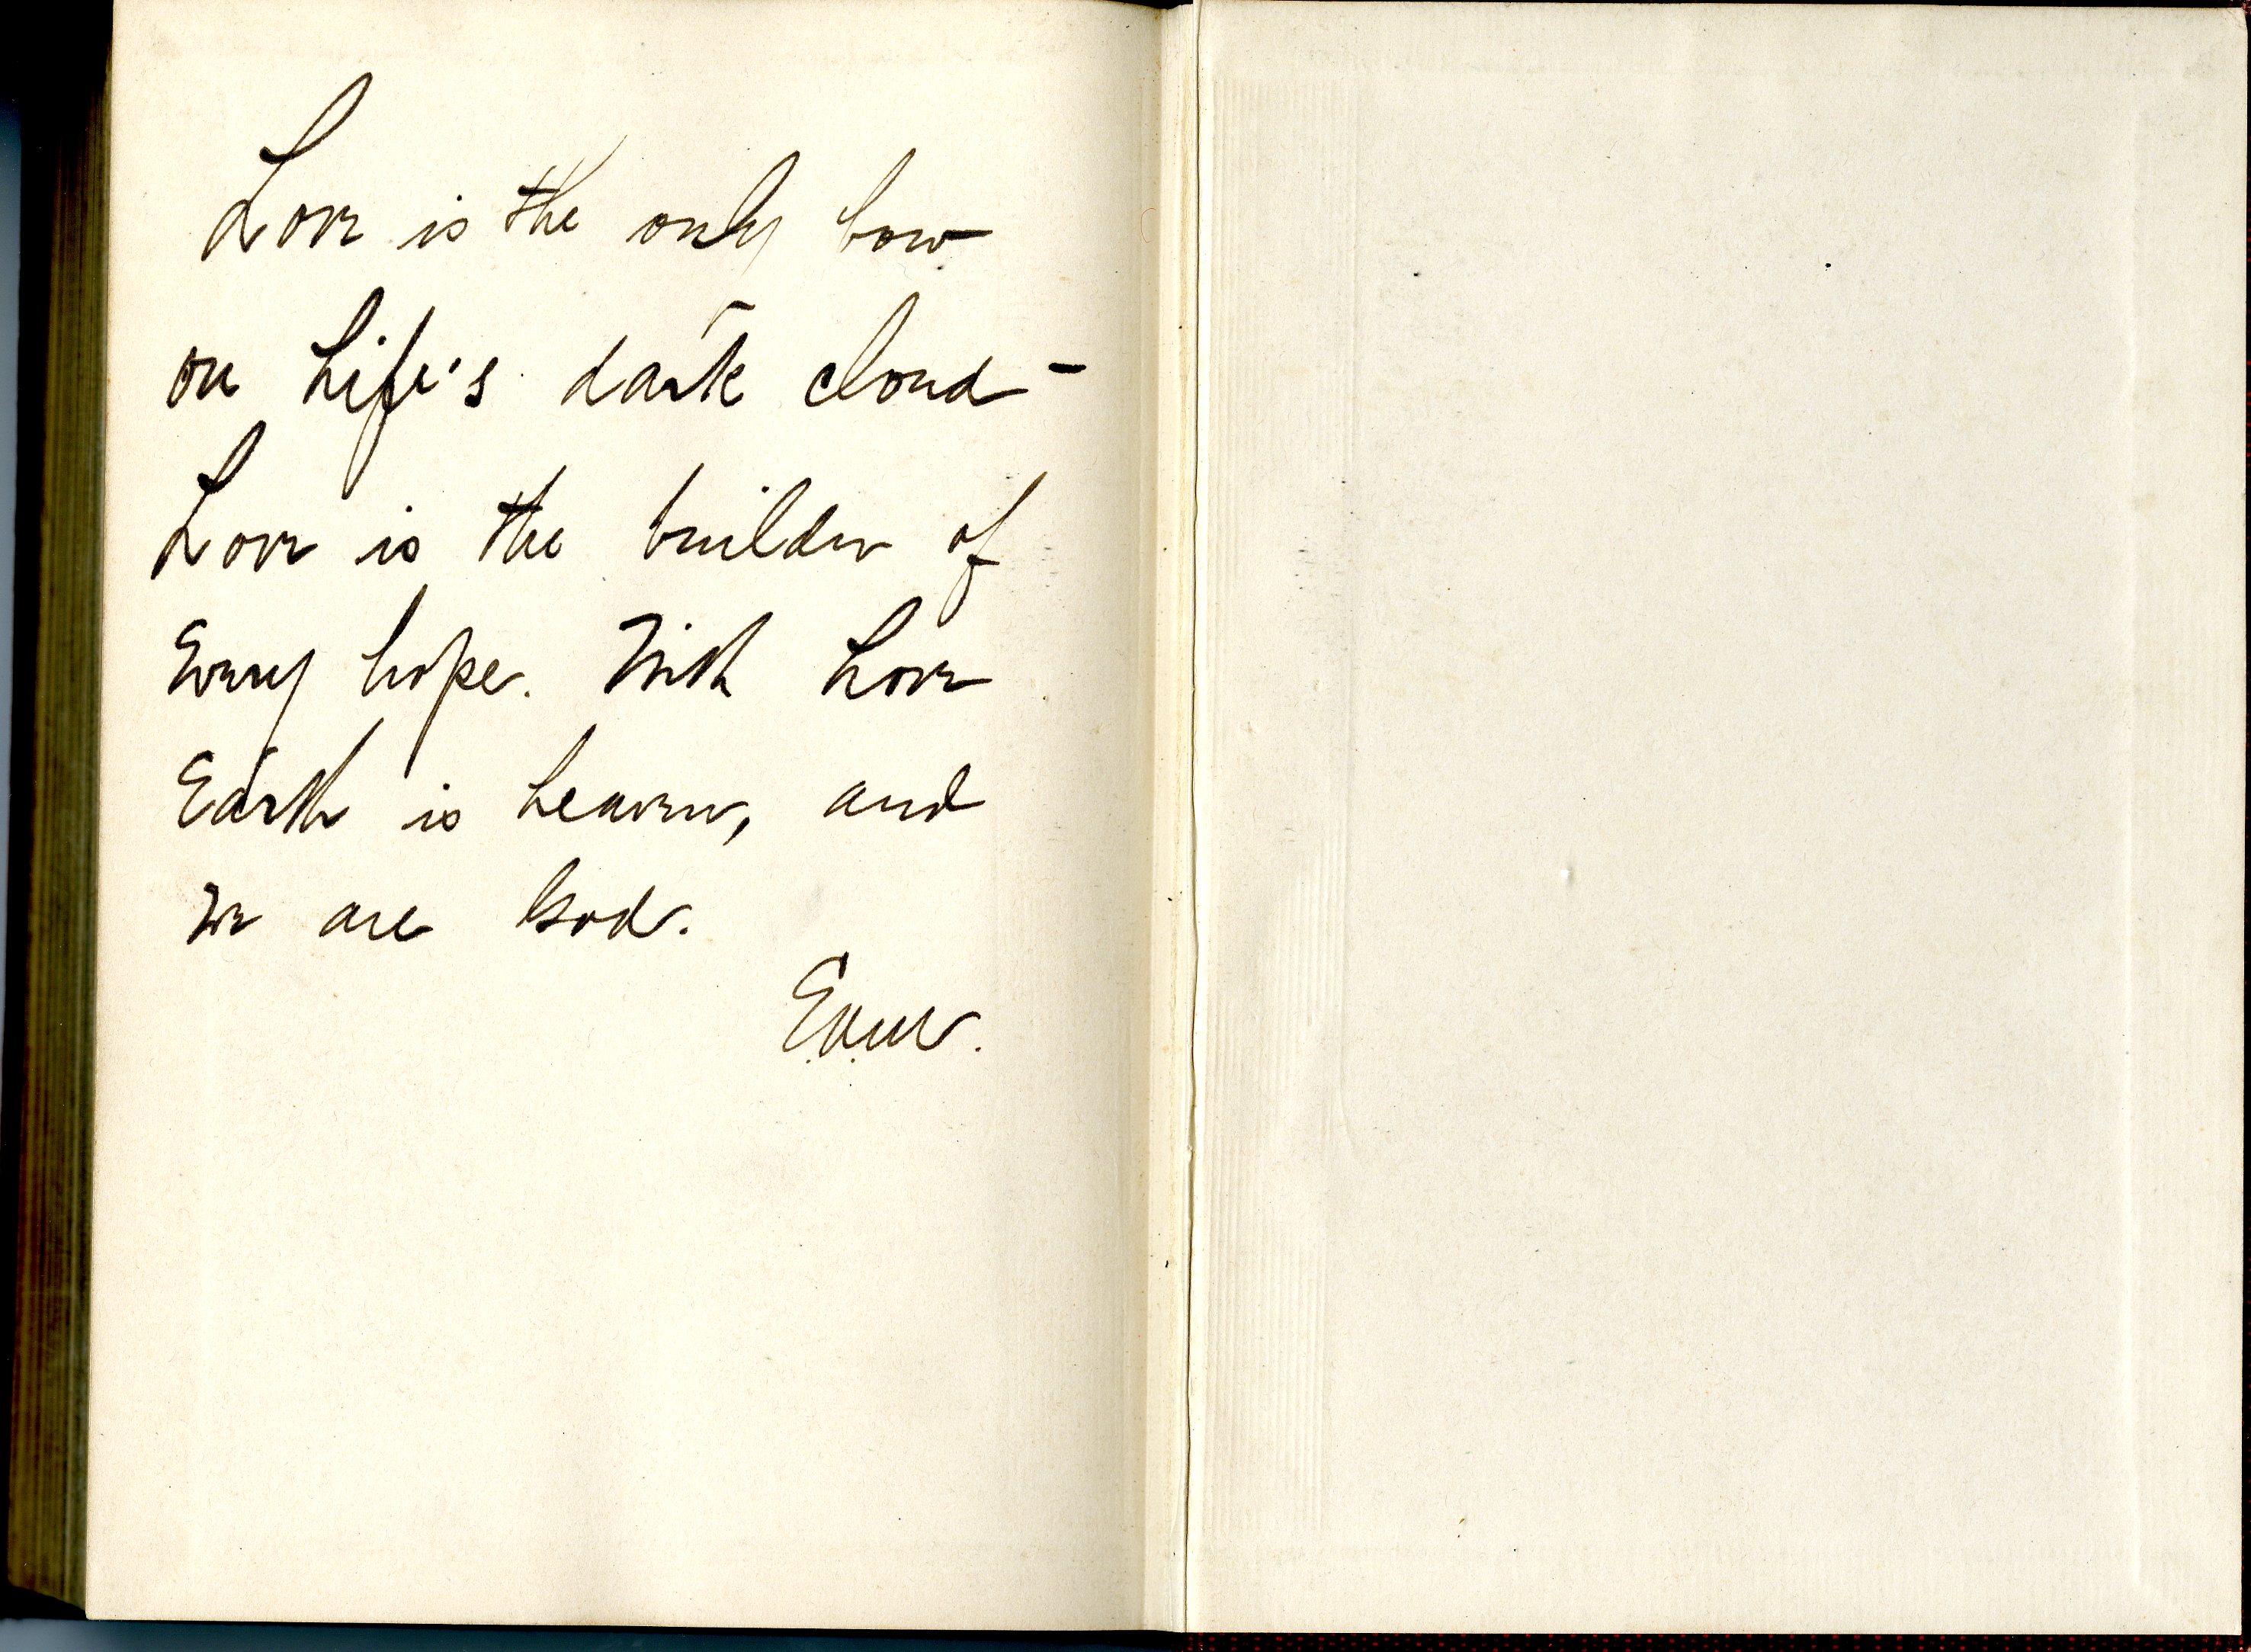 Love is the only bow
on Life's dark cloud -
Love is the builder of
Every hope. With Love
Earth is heaven, and
We are God.